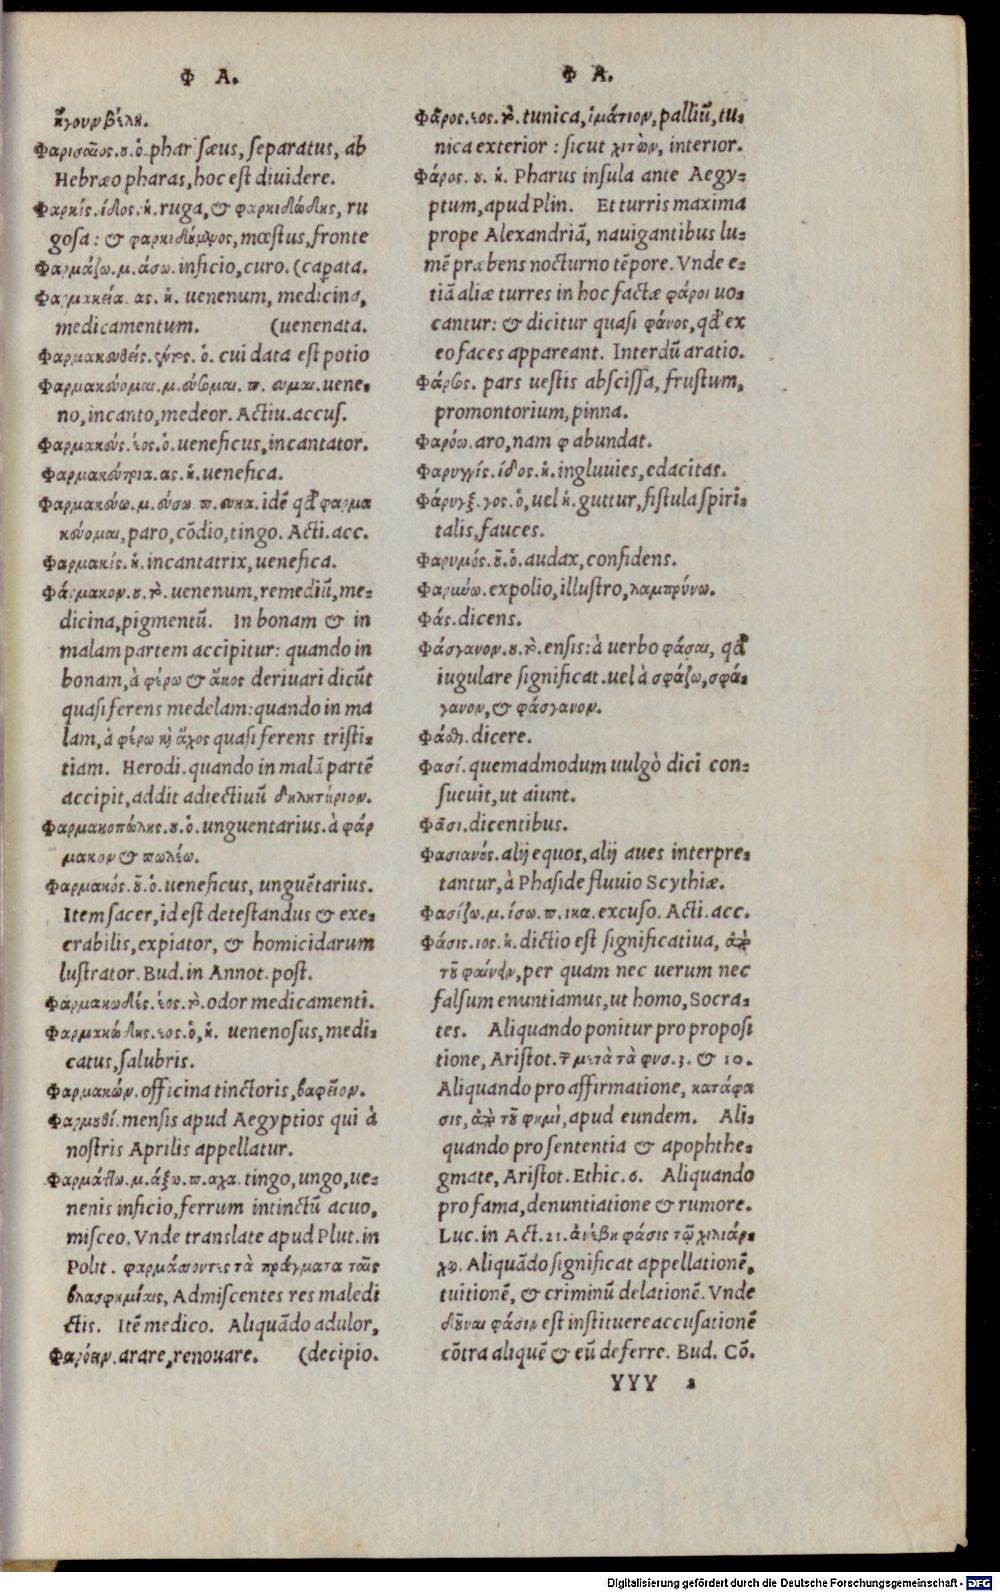 Φ Α.
ἤγουν βέλη.
Φαρισαῖος.ου.ὁ. pharisæus, separatus, ab
Hebræo pharas, hoc est diuidere.
Φαρκίς.ίδος.ἡ. ruga, & φαρκιδώδης, ru
gosa: & φαρκιδούμενος, mœstus, fronte
Φαρμάζω.μ.άσω. inficio, curo. (capata.
Φαρμακεία.ας.ἡ. uenenum, medicina,
medicamentum. (uenenata.
Φαρμακευθείς.έντος.ὁ. cui data est potio
Φαρμακεύομαι.μ.εύσομαι.π.ευμαι. uene-
no, incanto, medeor. Actiu. accus.
Φαρμακεύς.έος.ὁ. ueneficus, incantator.
Φαρμακεύτρια.ας.ἡ. uenefica.
Φαρμακεύω.μ.εύσω.π.ευκα. idē qď φαρμα
κεύομαι, paro, cōdio, tingo. Acti. acc.
Φαρμακίς.ἡ. incantatrix, uenefica.
Φάρμακον.ου.τὸ. uenenum, remediū, me-
dicina, pigmentū. In bonam & in
malam partem accipitur: quando in
bonam, à φέρω & ἄκος deriuari dicūt
quasi ferens medelam: quando in ma
lam, à φέρω καὶ ἄχος quasi ferens tristi-
tiam. Herodi. quando in malā partē
accipit, addit adiectiuū δηλητήριον.
Φαρμακοπώλης.ου.ὁ. unguentarius. à φάρ
μακον & πωλέω.
Φαρμακός.οῦ.ὁ. ueneficus, unguētarius.
Item sacer, id est detestandus & exe-
crabilis, expiator, & homicidarum
lustrator. Bud. in Annot. post.
Φαρμακωδές.έος.τὸ. odor medicamenti.
Φαρμακώδης.εος.ὁ, ἡ. uenenosus, medi-
catus, salubris.
Φαρμακών. officina tinctoris, βαφεῖον.
Φαρμουθί. mensis apud Aegyptios qui à
nostris Aprilis appellatur.
Φαρμάττω.μ.άξω.π.αχα. tingo, ungo, ue-
nenis inficio, ferrum intinctū acuo,
misceo. Vnde translate apud Plut. in
Polit. φαρμάσσοντες τὰ πράγματα ταῖς
βλασφημίαις, Admiscentes res maledi
ctis. Itē medico. Aliquādo adulor,
Φαρόειν. arare, renouare. (decipio.
Φ Α.
Φᾶρος.εος.τὸ. tunica, ἱμάτιον, palliū, tu-
nica exterior: sicut χιτὼν, interior.
Φάρος.ου.ἡ. Pharus insula ante Aegy-
ptum, apud Plin. Et turris maxima
prope Alexandriā, nauigantibus lu-
mē præbens nocturno tēpore. Vnde e-
tiā aliæ turres in hoc factæ φάροι uo-
cantur: & dicitur quasi φάνος, qď ex
eo faces appareant. Interdū aratio.
Φάρσος. pars uestis abscissa, frustum,
promontorium, pinna.
Φαρόω. aro, nam φ abundat.
Φαρυγγίς.ίδος.ἡ. ingluuies, edacitas.
Φάρυγξ.γος.ὁ, uel ἡ. guttur, fistula spiri-
talis, fauces.
Φαρυμός.οῦ.ὁ. audax, confidens.
Φαρμύω. expolio, illustro, λαμπρύνω.
Φάς. dicens.
Φάσγανον.ου.τὸ. ensis: à uerbo φάσαι, qď
iugulare significat. uel à σφάζω, σφά-
γανον, & φάσγανον.
Φάσθαι. dicere.
Φασί. quemadmodum uulgò dici con-
sueuit, ut aiunt.
Φᾶσι. dicentibus.
Φασιανός. alij equos, alij aues interpre-
tantur, à Phaside fluuio Scythiæ.
Φασίζω.μ.ίσω.π.ικα. excuso. Acti. acc.
Φάσις.ιος.ἡ. dictio est significatiua, ἀπὸ
τοῦ φαίνειν, per quam nec uerum nec
falsum enuntiamus, ut homo, Socra-
tes. Aliquando ponitur pro proposi
tione, Aristot. τῶν μετὰ τὰ φυσ. 3. & 10.
Aliquando pro affirmatione, κατάφα
σις, ἀπὸ τοῦ φημὶ, apud eundem. Ali-
quando pro sententia & apophthe-
gmate, Aristot. Ethic. 6. Aliquando
pro fama, denuntiatione & rumore.
Luc. in Act. 21. ἀνέβη φάσις τῷ χιλιάρ-
χῳ. Aliquādo significat appellationē,
tuitionē, & criminū delationē. Vnde
δοῦναι φάσιν est instituere accusationē
cōtra aliquē & eū deferre. Bud. Cō.
YYY 2
Digitalisierung gefördert durch die Deutsche Forschungsgemeinschaft - DFG